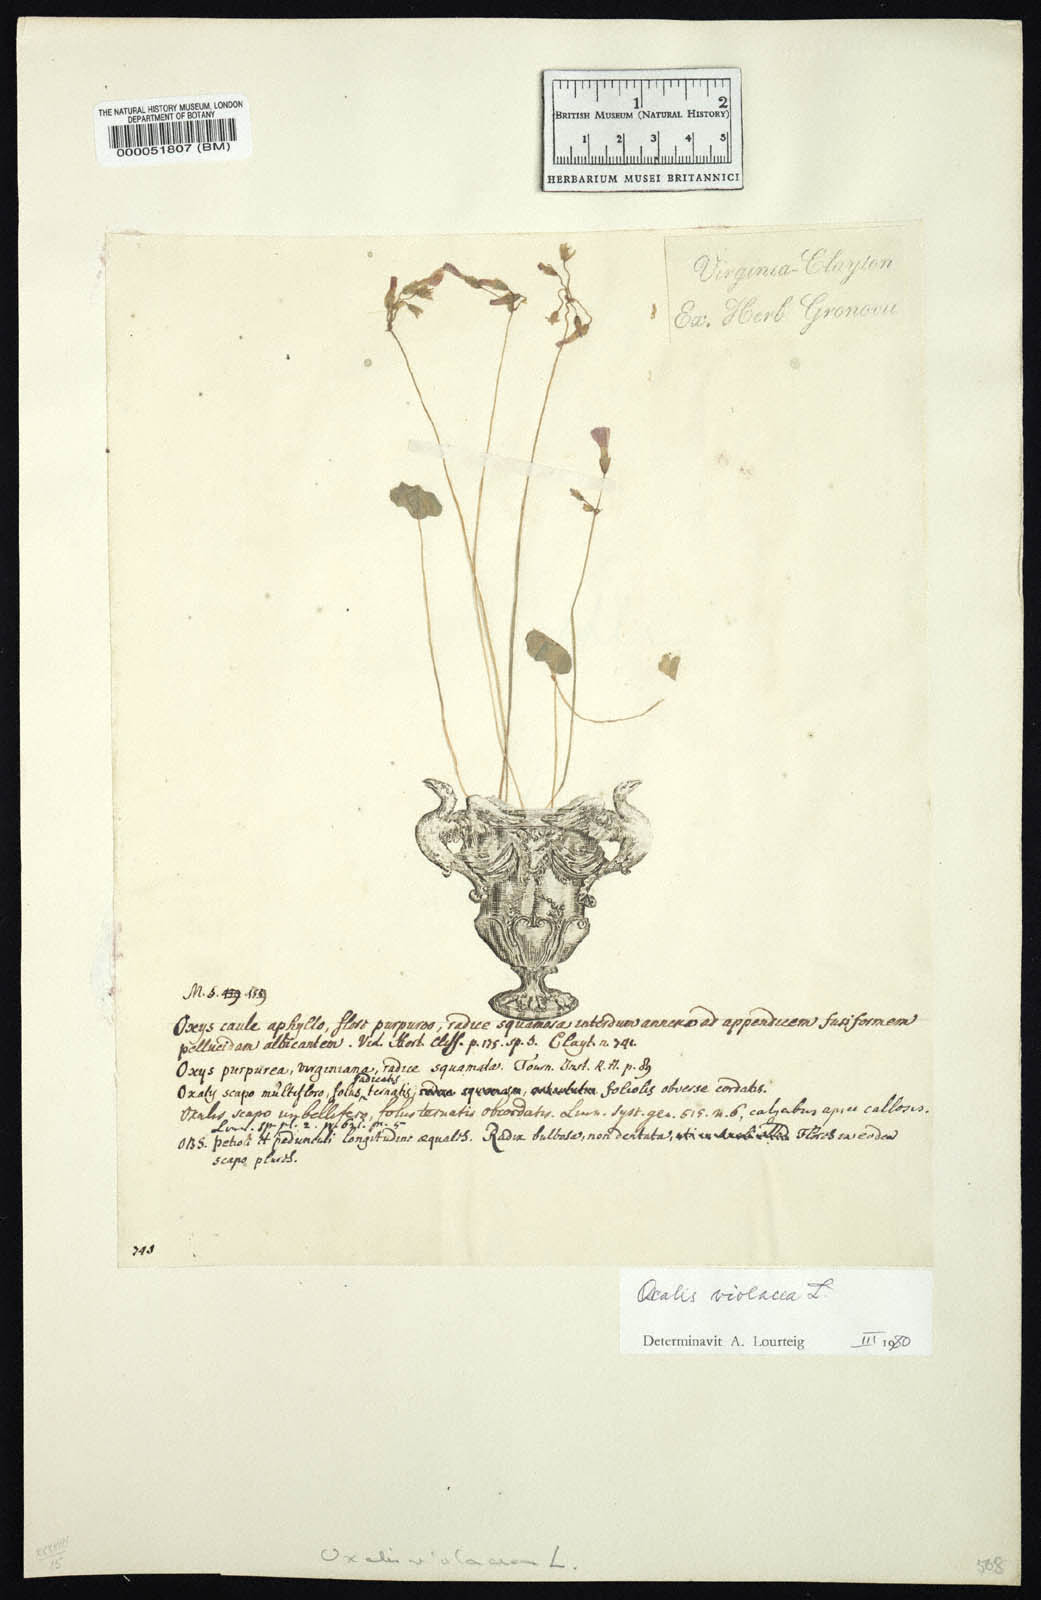 THE NATURAL HISTORY MUSEUM, LONDON
DEPARTMENT OF BOTANY
000051807 (BM)
1 2
BRITISH MUSEUM (NATURAL HISTORY)
1 2 3 4 5
HERBARIUM MUSEI BRITANNICI
Virginia-Clayton
Ex. Herb Gronovii
M. 5.
Oxys caule aphyllo, flore purpureo, radice squamosa interdum annexa ad appendicem fusiformem
pellucidam albicantem. Vid. Hort. Cliff. p. 175. sp. 3. Clayt. n.
Oxys purpurea, virginiana, radice squamata. Tourn. Inst. R.H. p. 89
Oxalys scapo multifloro, foliis radicalis ternatis, foliolis obverse cordatis.
Oxalis scapo umbellifero, foliis ternatis obcordatis. Linn. Syst. gen. 515. n. 6, calycibus apice callosis.
Linn. sp. pl. 2. p.
OBS. Petioli et pedunculi longitudine æquales. Radix bulbosa, non dentata, Flores in eodem
scapo plures.
743
Oxalis violacea L.
Determinavit A. Lourteig III 1980
Oxalis violacea L.
15
508